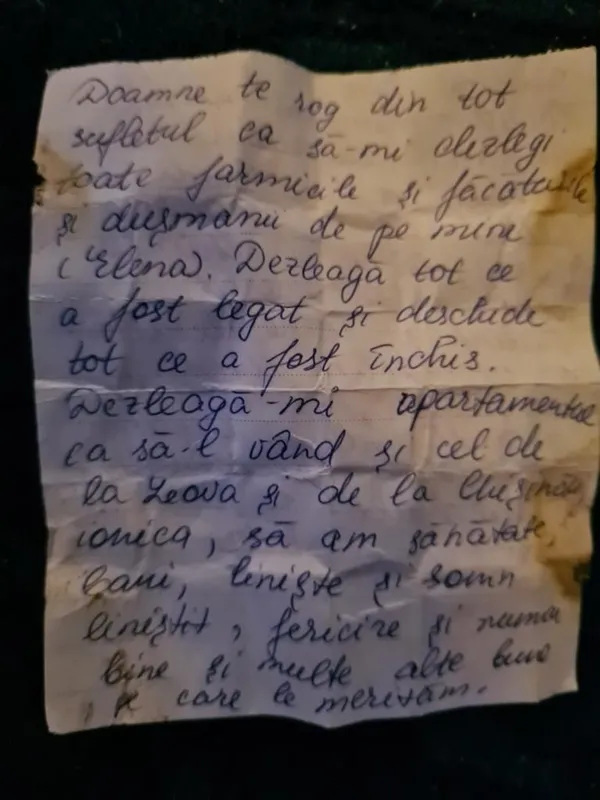 Doamne te rog din tot
sufletul ca să-mi dezlegi
toate farmicile și făcăturile
și dușmanii de pe mine
(Elena). Dezleagă tot ce
a fost legat și deschide
tot ce a fost închis.
Dezleagă-mi apartamentul
ca să-l vând și cel de
la Leova și de la Chișinău,
ionica, să am sănătate,
bani, liniște și somn
liniștit, fericire și numai
bine și multe alte bune
care le merităm.